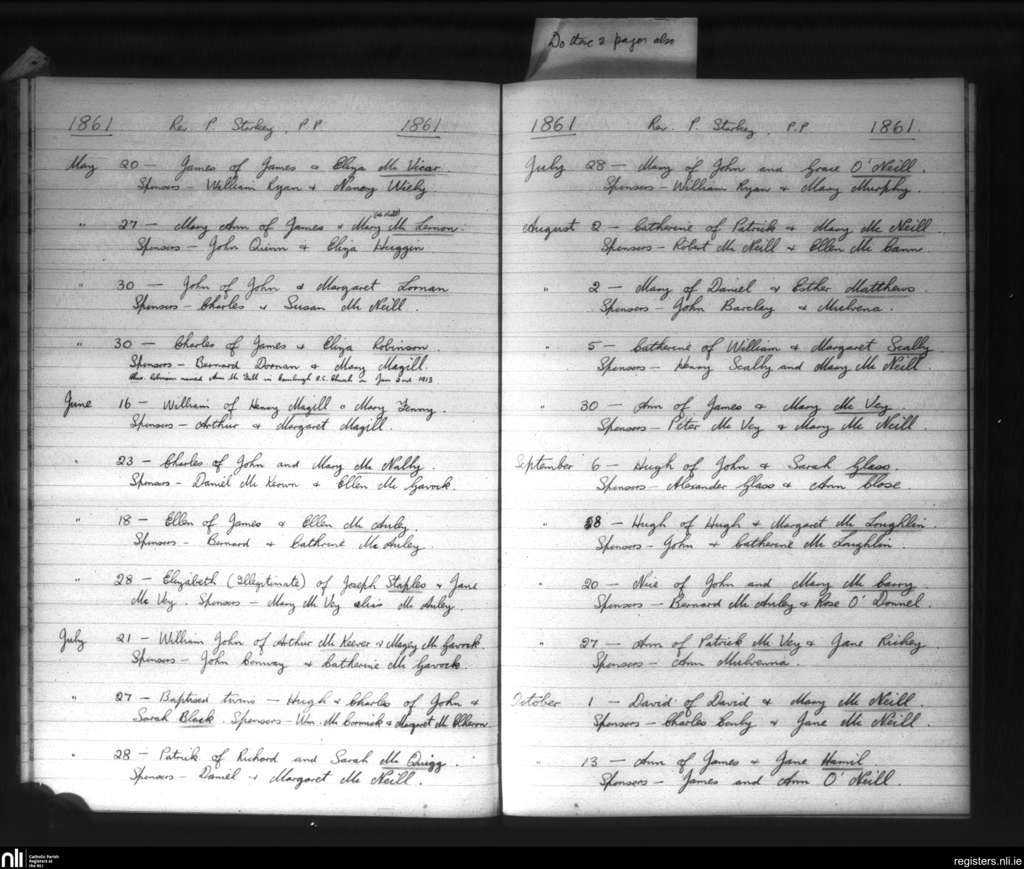 Do these 2 pages also
1861 Rev P. Starkey, P.P 1861
May 20 — James of James & Eliza Mc Vicar
Sponsors — William Ryan & Nancy
" 27 — Mary Ann of James & Mary Mc Lernon
Sponsors — John Quinn & Eliza Huggin
" 30 — John of John & Margaret Lornan
Sponsors — Charles & Susan Mc Neill
" 30 — Charles of James & Eliza Robinson
Sponsors — Bernard Dornan & Mary Magill.
in R.C. Church on Jan 2nd 1913
June 16 — William of Henry Magill & Mary
Sponsors — Arthur & Margaret Magill.
" 23 — Charles of John and Mary Mc Nally.
Sponsors — Daniel Mc Keown & Ellen Mc Gavock.
" 18 — Ellen of James & Ellen Mc Auley.
Sponsors — Bernard & Cathrine Mc Auley
" 28 — Elizabeth (Illegitimate) of Joseph Staples & Jane
Mc Vey. Sponsors — Mary Mc Vey alias Mc Auley.
July 21 — William John of Arthur Mc Keever & Magey Mc Gavock
Sponsors — John Conway & Catherine Mc Gavock.
" 27 — Baptised twins — Hugh & Charles of John &
Sarah Black. Sponsors — Wm. Mc Cormick & Margaret Mc Elheron
" 28 — Patrick of Richard and Sarah Mc Quigg
Sponsors — Daniel & Margaret Mc Neill.
1861 Rev. P. Starkey, P.P 1861.
July 28 — Mary of John and Grace O'Neill.
Sponsors — William Ryan & Mary Murphy.
August 2 — Catherine of Patrick & Mary Mc Neill
Sponsors — Robert Mc Neill & Ellen Mc Cann
" 2 — Mary of Daniel & Esther Matthews.
Sponsors John Barclay & Mulvena.
" 5 — Catherine of William & Margaret Scally
Sponsors — Henry Scally and Mary Mc Neill
" 30 — Ann of James & Mary Mc Vey
Sponsors — Peter Mc Vey & Mary Mc Neill.
September 6 — Hugh of John & Sarah Glass
Sponsors — Alexander Glass & Ann Close
" 8 — Hugh of Hugh & Margaret Mc Loughlin
Sponsors — John & Catherine Mc Loughlin.
" 20 — of John and Mary Mc Carry
Sponsors — Bernard Mc Auley & Rose O'Donnel.
" 27 — Ann of Patrick Mc Vey & Jane Rickey
Sponsors — Ann Mulvenna
October 1 — David of David & Mary Mc Neill
Sponsors — Charles & Jane Mc Neill.
" 13 — Ann of James & Jane Hamil
Sponsors — James and Ann O'Neill.
nli Catholic Parish
Registers at
the NLI
registers.nli.ie